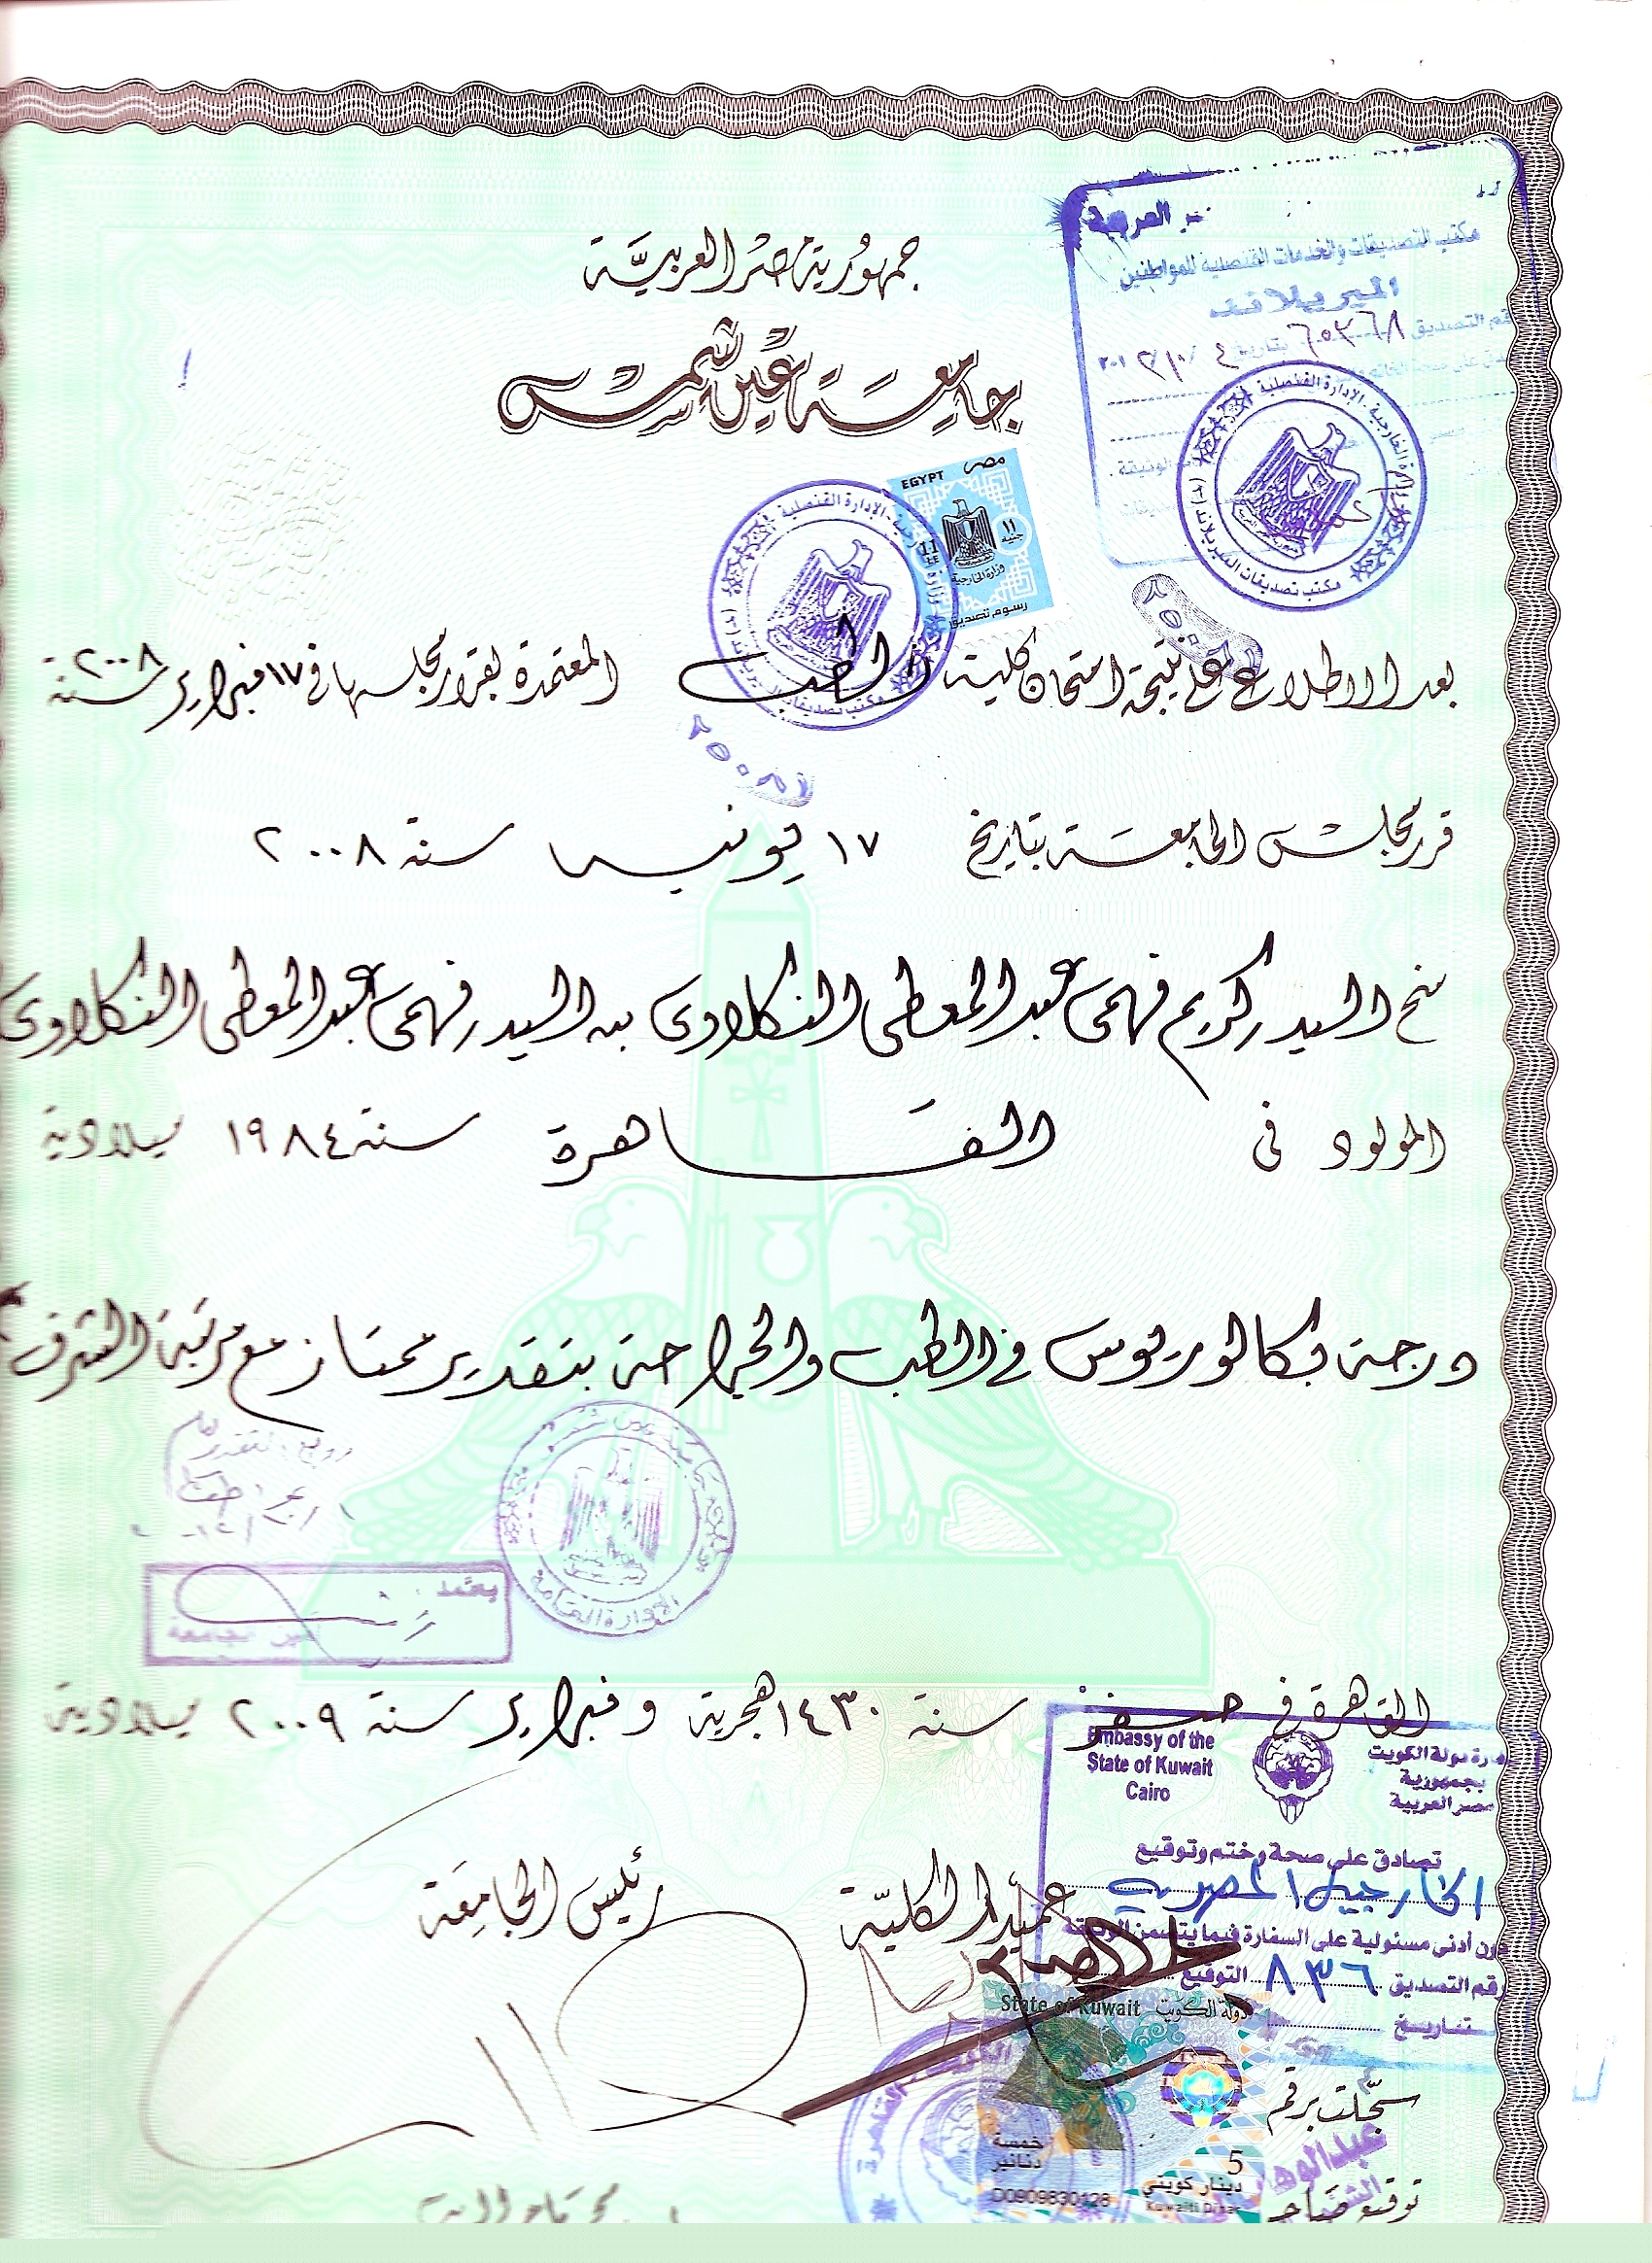 جمهورية مصر العربية
جامعة عين شمس
العربية
مكتب التصديقات والخدمات القنصلية للمواطنين
الميريلاند
رقم التصديق
EGYPT مصر
١١ جنيه
11
وزارة الخارجية
رسوم تصديق
الإدارة القنصلية
مكتب تصديقات الميريلاند (٢)
بعد الاطلاع على نتيجة امتحان كلية الطب المعتمدة بقرار مجلسها في ١٧ فبراير سنة ٢٠٠٨
قرر مجلس الجامعة بتاريخ ١٧ يونيه سنة ٢٠٠٨
منح السيد كريم فهمى عبد المعطى النكلاوى بن السيد فهمى عبد المعطى النكلاوى
المولود فى القاهرة سنة ١٩٨٤ ميلادية
درجة بكالوريوس في الطب والجراحة بتقدير ممتاز مع مرتبة الشرف
جامعة عين شمس
الإدارة العامة
يعتمد
أمين الجامعة
القاهرة في صفر سنة ١٤٣٠ هجرية و فبراير سنة ٢٠٠٩ ميلادية
Embassy of the
State of Kuwait
Cairo
سفارة دولة الكويت
بجمهورية
مصر العربية
تصادق على صحة وختم وتوقيع
الخارجية المصرية
دون أدنى مسئولية على السفارة فيما يتضمن الوثيقة
رقم التصديق ٨٣٦ التوقيع
بتاريخ
عميد الكلية
رئيس الجامعة
State of Kuwait دولة الكويت
القاهرة
خمسة
دنانير
5
دينار كويتي
Kuwaiti Dinar
D0909830128
سجلت برقم
توقيع صاحب